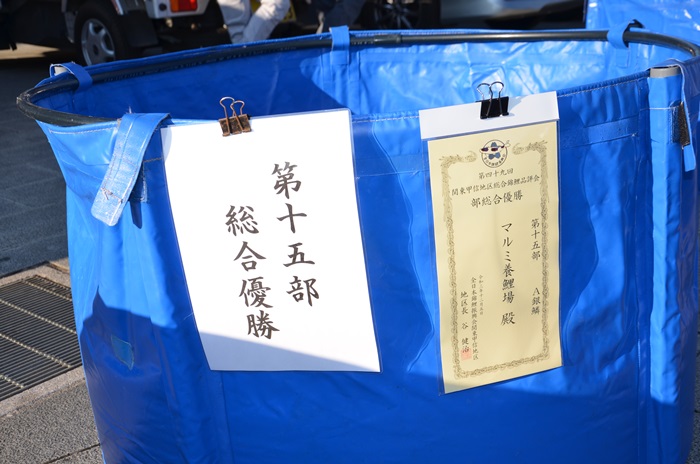 第十五部
総合優勝
第四十九回
関東甲信地区総合錦鯉品評会
部総合優勝
第十五部 A銀鱗
マルミ養鯉場 殿
全日本錦鯉振興会関東甲信地区
地区長 谷 健治